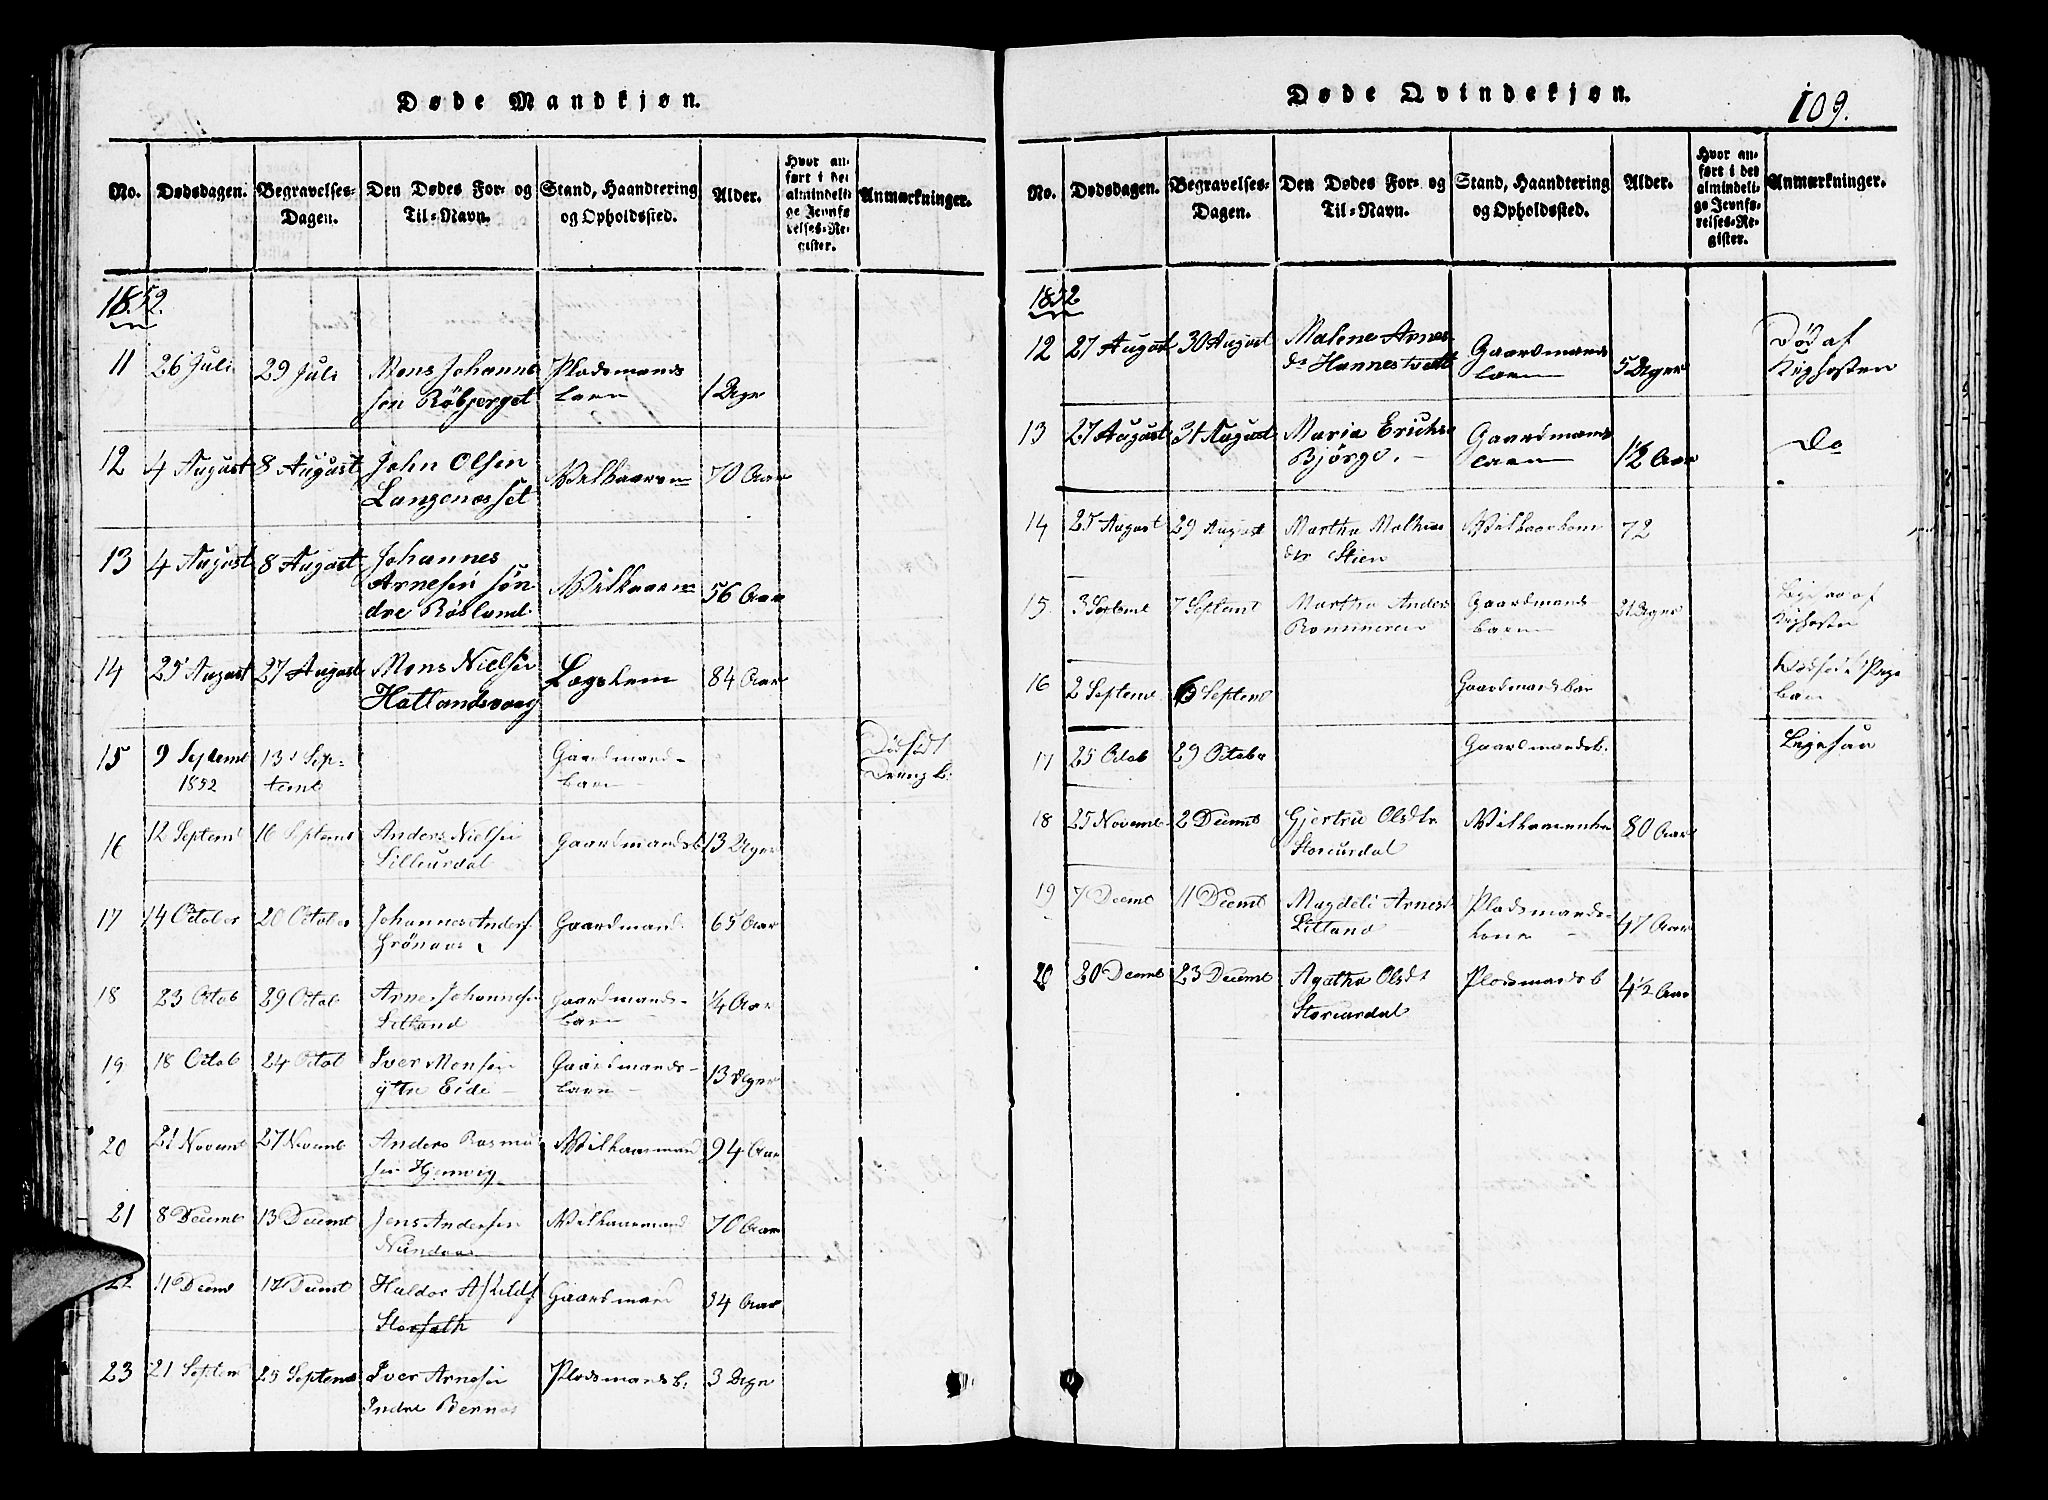 Døde Mandkjøn.
No. Dødsdagen. Begravelses-Dagen. Den Dødes For- og Til-Navn. Stand, Haandtering og Opholdssted. Alder. Hvor anført i det almindelige Jevnførelses-Register. Anmærkninger.
1852.
11 26 Juli 29 Juli Mons Johannes Pladsmands
sen Röbjerget barn 1 Uge
12 4 August 8 August John Olsen
Langenæsset 70 Aar
13 4 August 8 August Johannes
Arnesen Søn
dre Røsland 56 Aar
14 25 August 27 August Mons Nielsen
Hatlandsvaag Lægslem 84 Aar
15 9 Septemb 13de Sep- Gaardmand- Dödfödt
1852 temb barn Dreng b.
16 12 Septemb 16 Septemb Anders Nielsen
Lilleurdal Gaardmandsb 13 Uger
17 14 October 20 October Johannes Anders
Grönaas Gaardmand 65 Aar
18 23 Octob 29 Octob Arne Johannesen Gaardmands-
Litland barn 1/4 Aar
19 18 Octob 24 Octob Iver Monsen Gaardmands-
ytre Eide barn 13 Uger
20 21 Novemb 27 Novemb Anders Rasmus Vilkaarmand 94 Aar
sen Hjemvig
21 8 Decemb 13 Decemb Jens Andersen Vilkaarmand 70 Aar
22 11 Decemb 17 Decemb Haldor Gaardmand 34 Aar
23 21 Septem 25 Septemb Iver Arnesen Pladsmandsb. 3 Uger
Indre Bernes
Døde Qvindekjøn. 109.
No. Dødsdagen. Begravelses-Dagen. Den Dødes For- og Til-Navn. Stand, Haandtering og Opholdssted. Alder. Hvor anført i det almindelige Jevnførelses-Register. Anmærkninger.
1852
12 27 August 30 August Malene Arnes Gaardmands Död af
dr Hannestvett barn 5 Uger Kighosten
13 27 August 31 August Maria Erichs Gaardmands
Bjørge. barn 1 1/2 Aar Do
14 25 August 29 August Martha Mathias Vilkaarkone 72
dtr Stien
15. 3 Septemb 7 Septemb Martha Anders Gaardmands 21 Uger Ligesaa af
barn Kighosten
16 2 Septemb 6 Septemb Gaardmandsbar Dödfödt Pige
barn
17 25 Octob 29 Octobr Gaardmandsb. Ligesaa
18 25 Novemb 2 Decemb Gjertru Olsdtr 80 Aar
Storeurdal
19 7 Decemb 11 Decemb Magdeli Arnesd Pladsmands-
Litland kone 47 Aar
20 20 Decemb 23 Decemb Agatha Olsdt Pladsmandsb 4 1/2 Aar
Storeurdal